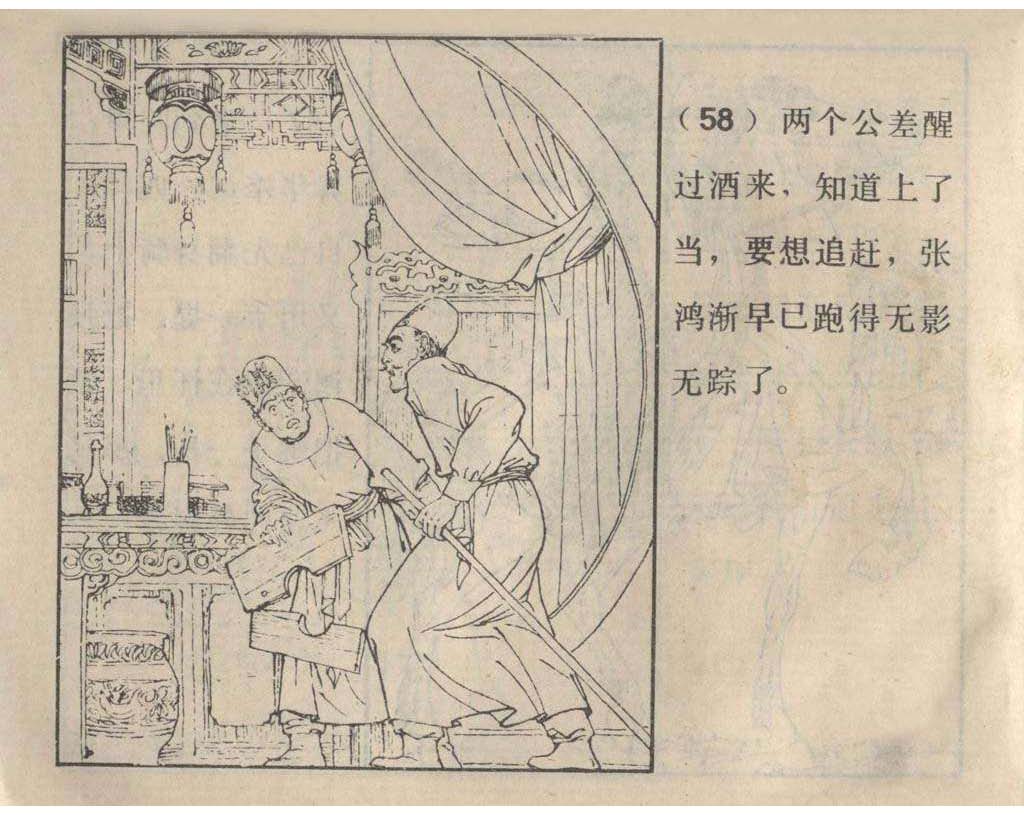 （58）两个公差醒
过酒来，知道上了
当，要想追赶，张
鸿渐早已跑得无影
无踪了。